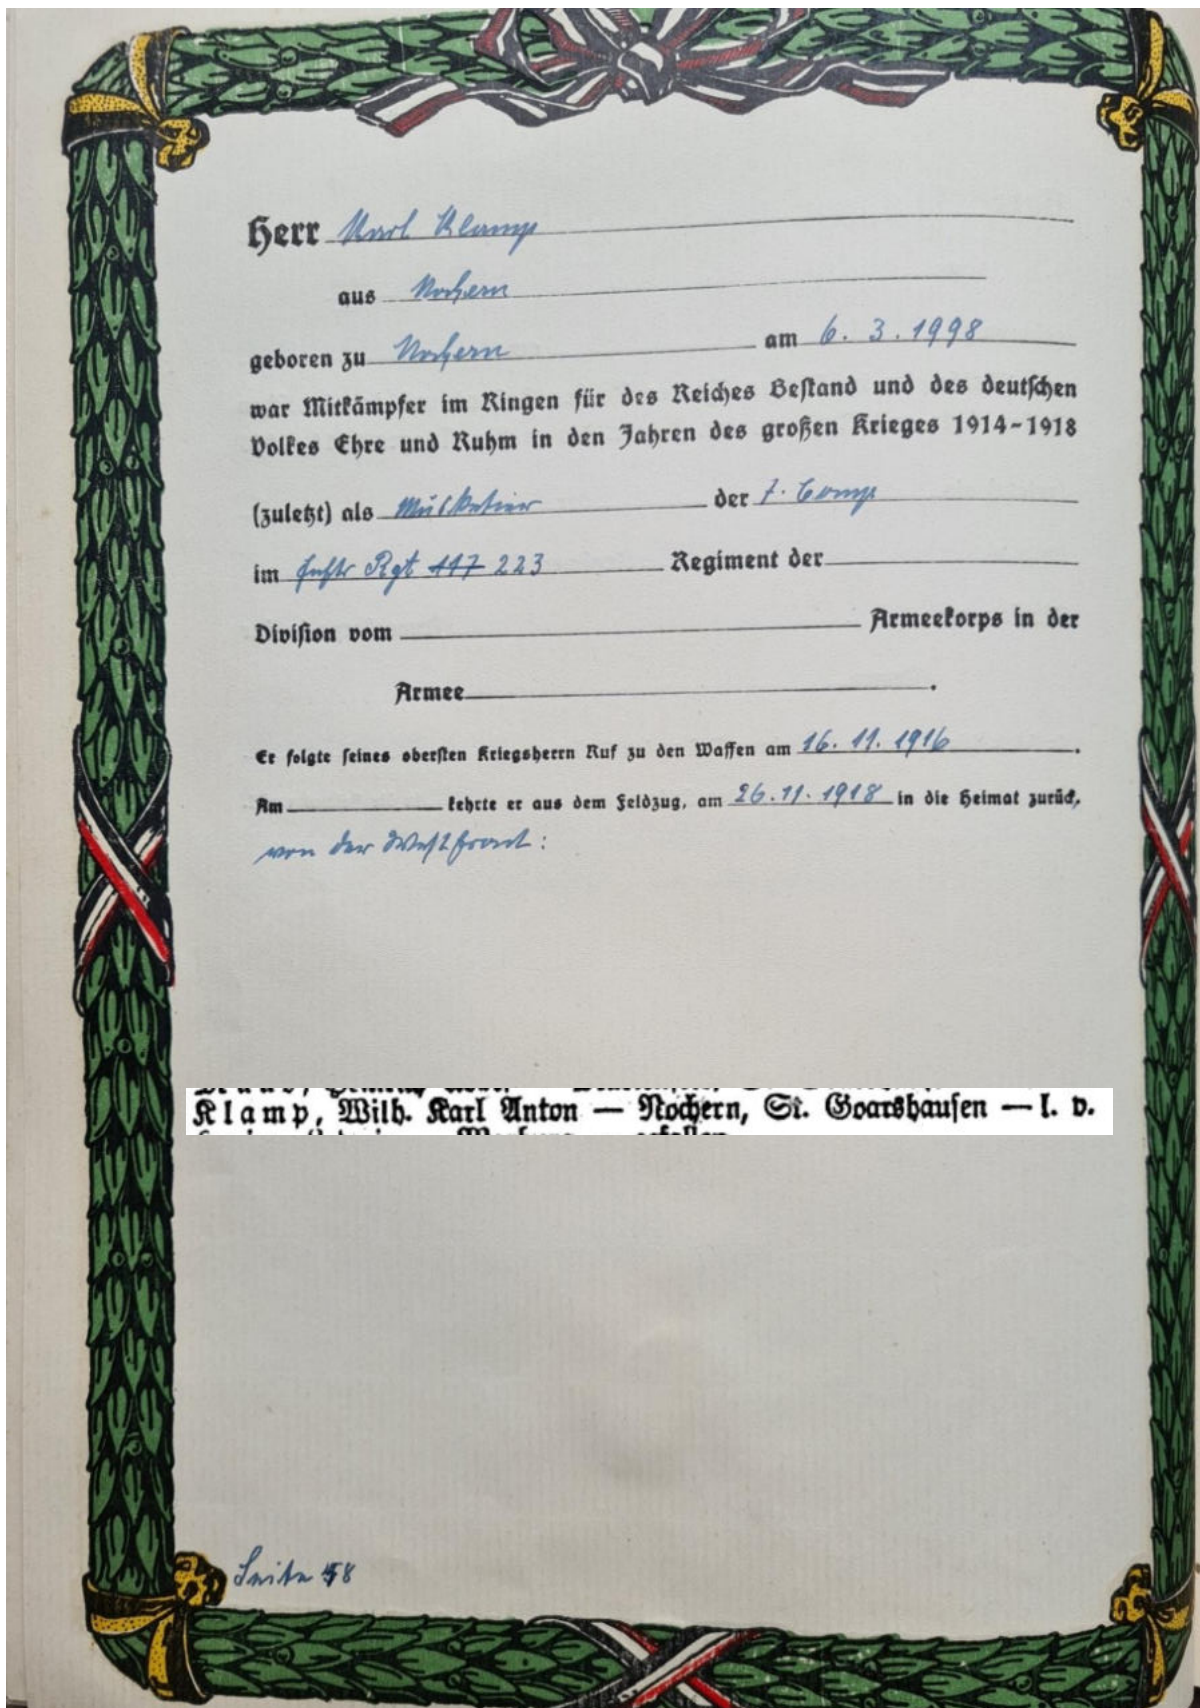 Herr Karl Klamp
aus Nochern
geboren zu Nochern am 6. 3. 1998
war Mitkämpfer im Ringen für des Reiches Bestand und des deutschen
Volkes Ehre und Ruhm in den Jahren des großen Krieges 1914-1918
(zuletzt) als Musketier der 7. Comp
im Inftr Rgt 117 223 Regiment der
Division vom Armeekorps in der
Armee .
Er folgte seines obersten Kriegsherrn Ruf zu den Waffen am 16. 11. 1916 .
Am kehrte er aus dem Feldzug, am 26.11.1918 in die Heimat zurück,
von der Westfront:
Klamp, Wilh. Karl Anton — Nochern, St. Goarshausen — l. v.
Seite 58